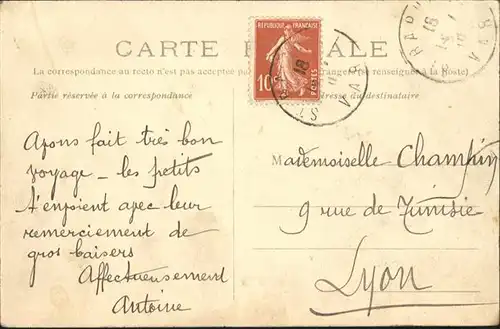 CARTE POSTALE
La correspondance au recto n'est pas acceptée par (se renseigner à la poste)
Partie réservée à la correspondance
Adresse du destinataire
RÉPUBLIQUE FRANÇAISE
10
POSTES
18
VAR
18
VAR
Ayons fait très bon
voyage - les petits
t'envoient avec leur
remerciement de
gros baisers
Affectueusement
Antoine
Mademoiselle Champin
9 rue de Tunisie
Lyon